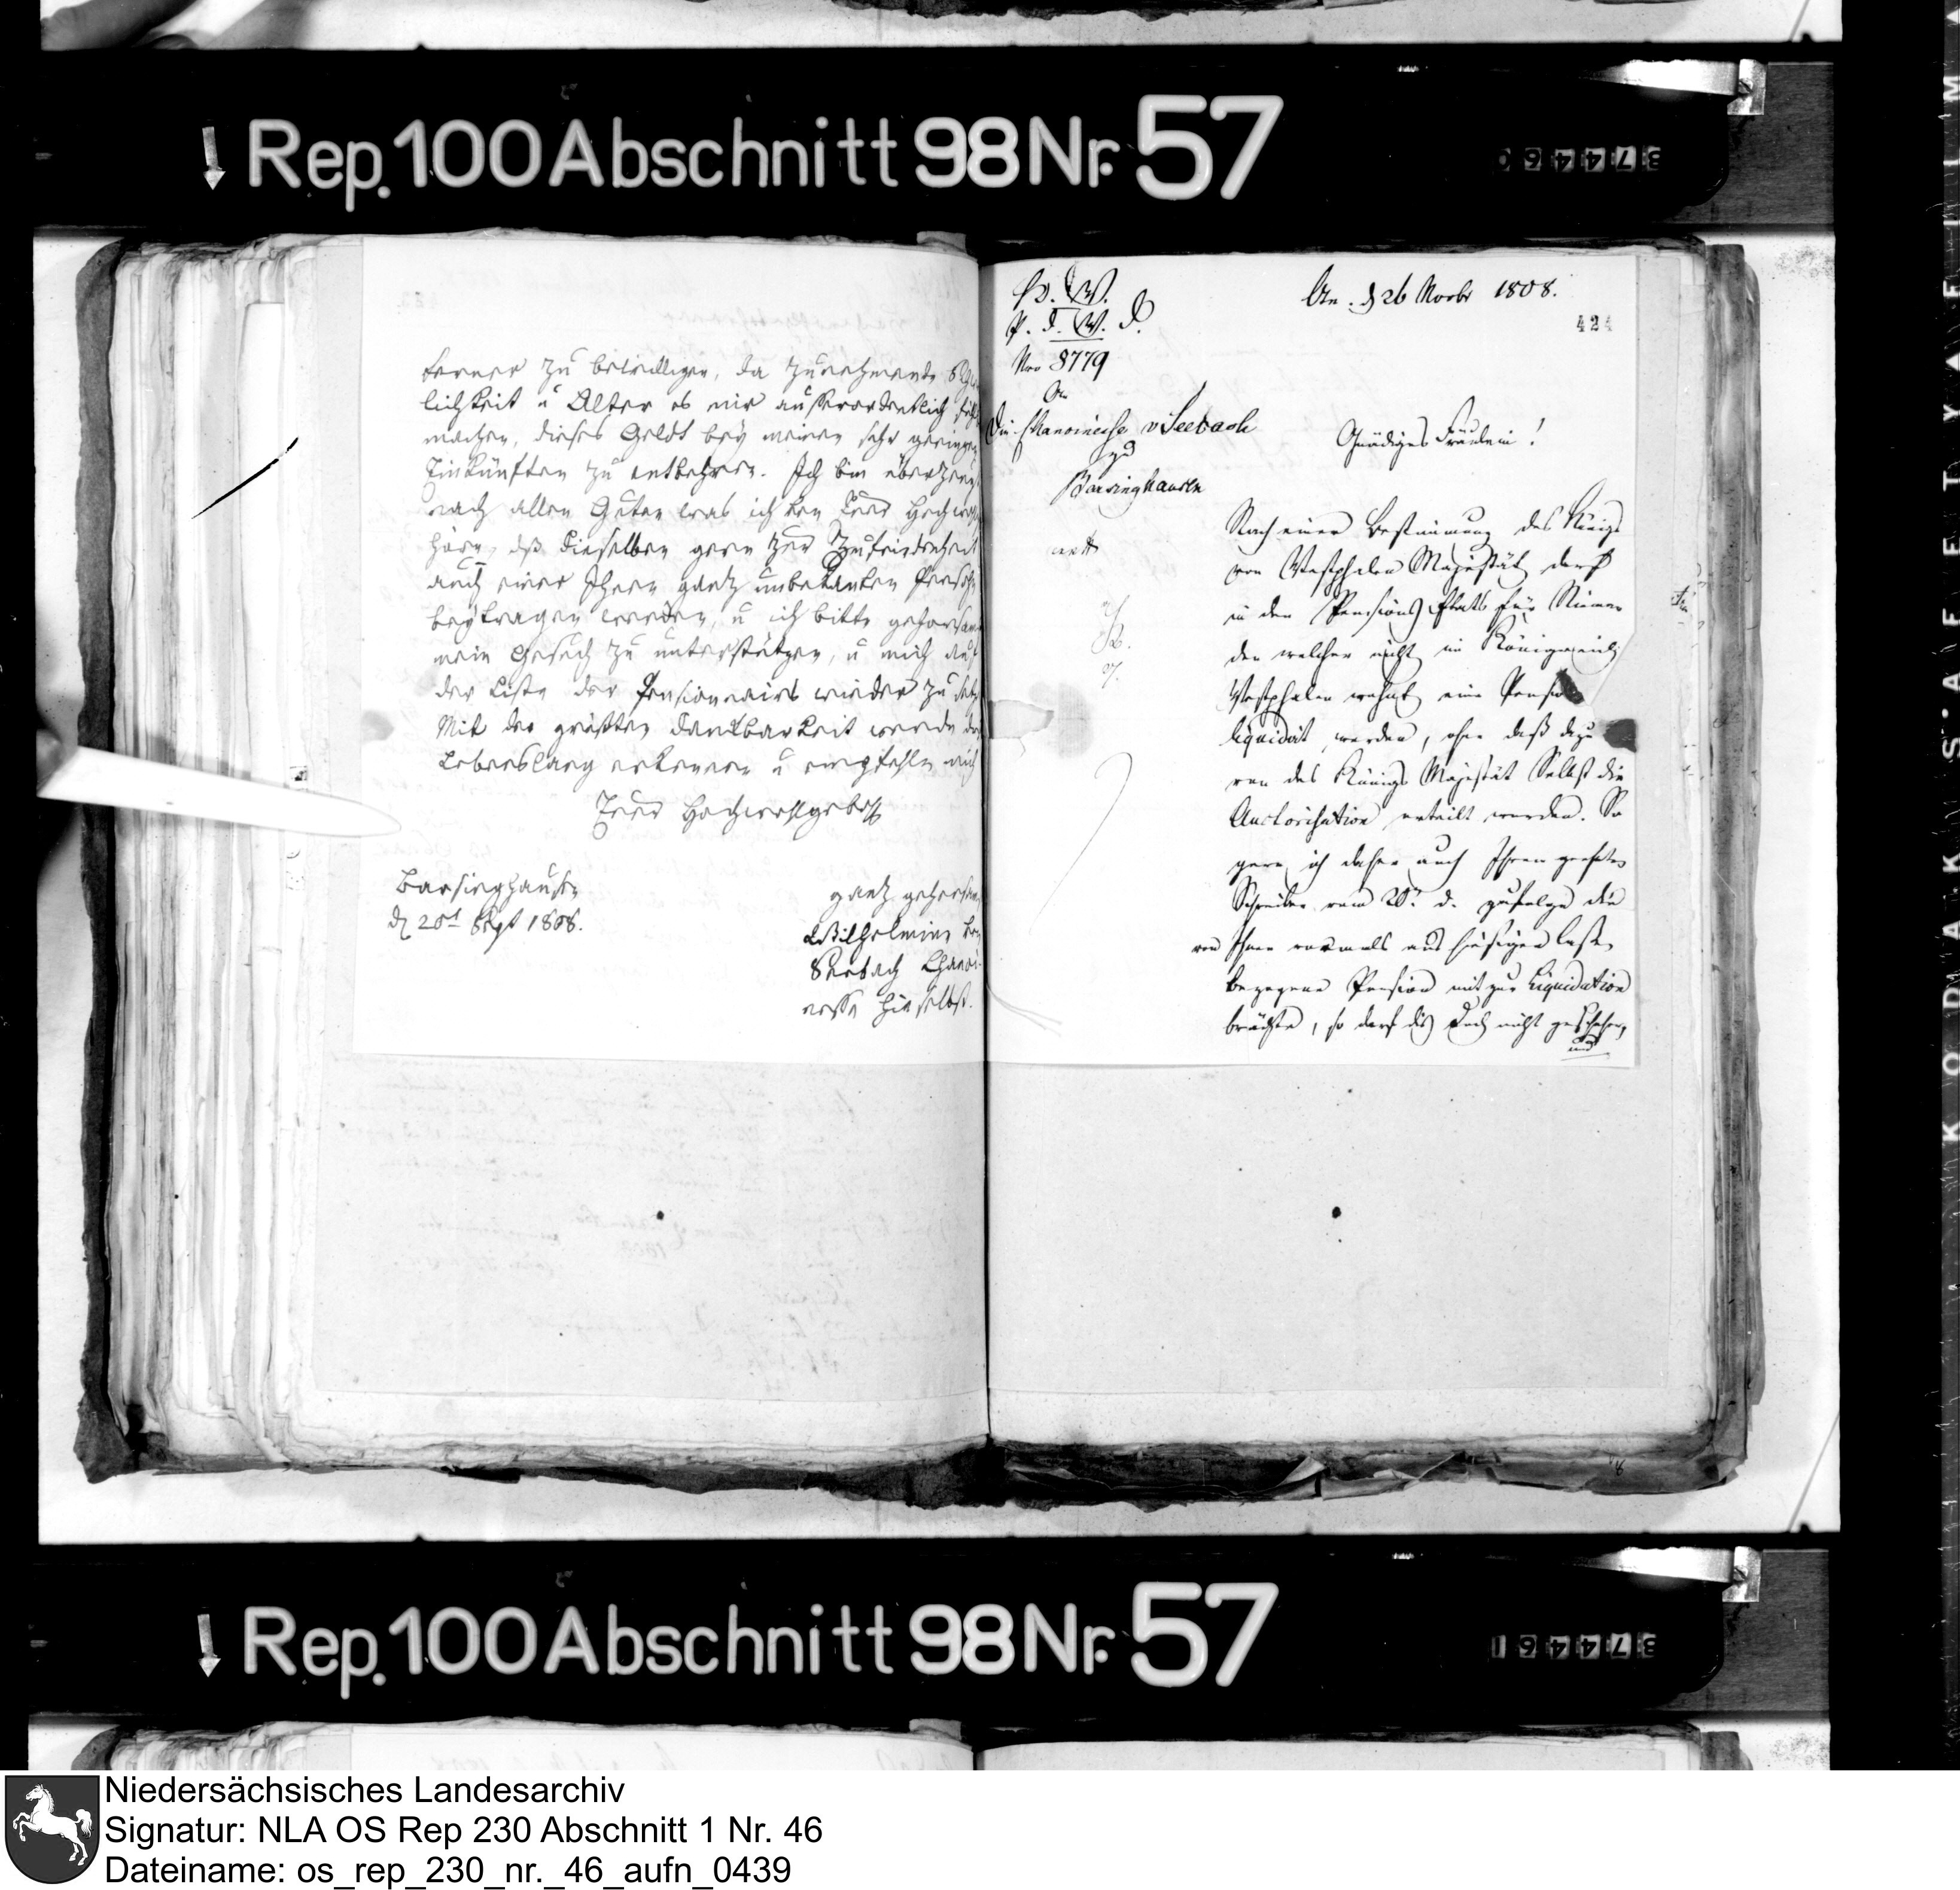 Rep. 100 Abschnitt 98 Nr. 57
374460
ferner zu bewilligen, da zunehmende
lichkeit u Alter es mir ausserordentlich
machen, dieses Geldt bey meinen sehr geringen
Einkünften zu entbehren. Ich bin überzeug
nach allen Guten was ich von Euer Hochwohl
höre, dß dieselben gern zur Zufriedenheit
auch einer Ihnen gantz unbekanten Persohn
beytragen werden, u ich bitte gehorsamst
mein Gesuch zu unterstützen, u mich auf
der Liste der Pensionairs wieder zu setzen
Mit der größten Dankbarkeit werde
Lebenslang erkennen u empfehle mich
Euer Hochwohlgeb
Barsinghausen
d 20t Sept 1808.
gantz gehorsam
Wilhelmine von
Seebach Chanoi-
nesse hieselbst.
Osn. d 26 Novbr 1808.
424
P. d. W. D.
Nro 8779
An
Die Chanoinesse v Seebach
zu
Barsinghausen
Gnädiges Fräulein!
Nach einer Bestimmung des Königs
von Westphalen Majestät darf
in den Pensions Etats für Niemanden
der welcher nicht im Königreich
Westphalen wohnt eine Pension
liquidirt werden, ohne daß dazu
von des Königs Majestät Selbst die
Auctorisation ertheilt worden. So
gern ich daher auch Ihrem geehrten
Schreiben vom 20t d. zufolge die
von Ihnen vormals aus hiesiger Casse
bezogene Pension mit zur Liquidation
brächte, so darf dis doch nicht geschehen,
und
Rep. 100 Abschnitt 98 Nr. 57
374461
KODAK SAFETY FILM
Niedersächsisches Landesarchiv
Signatur: NLA OS Rep 230 Abschnitt 1 Nr. 46
Dateiname: os_rep_230_nr._46_aufn_0439